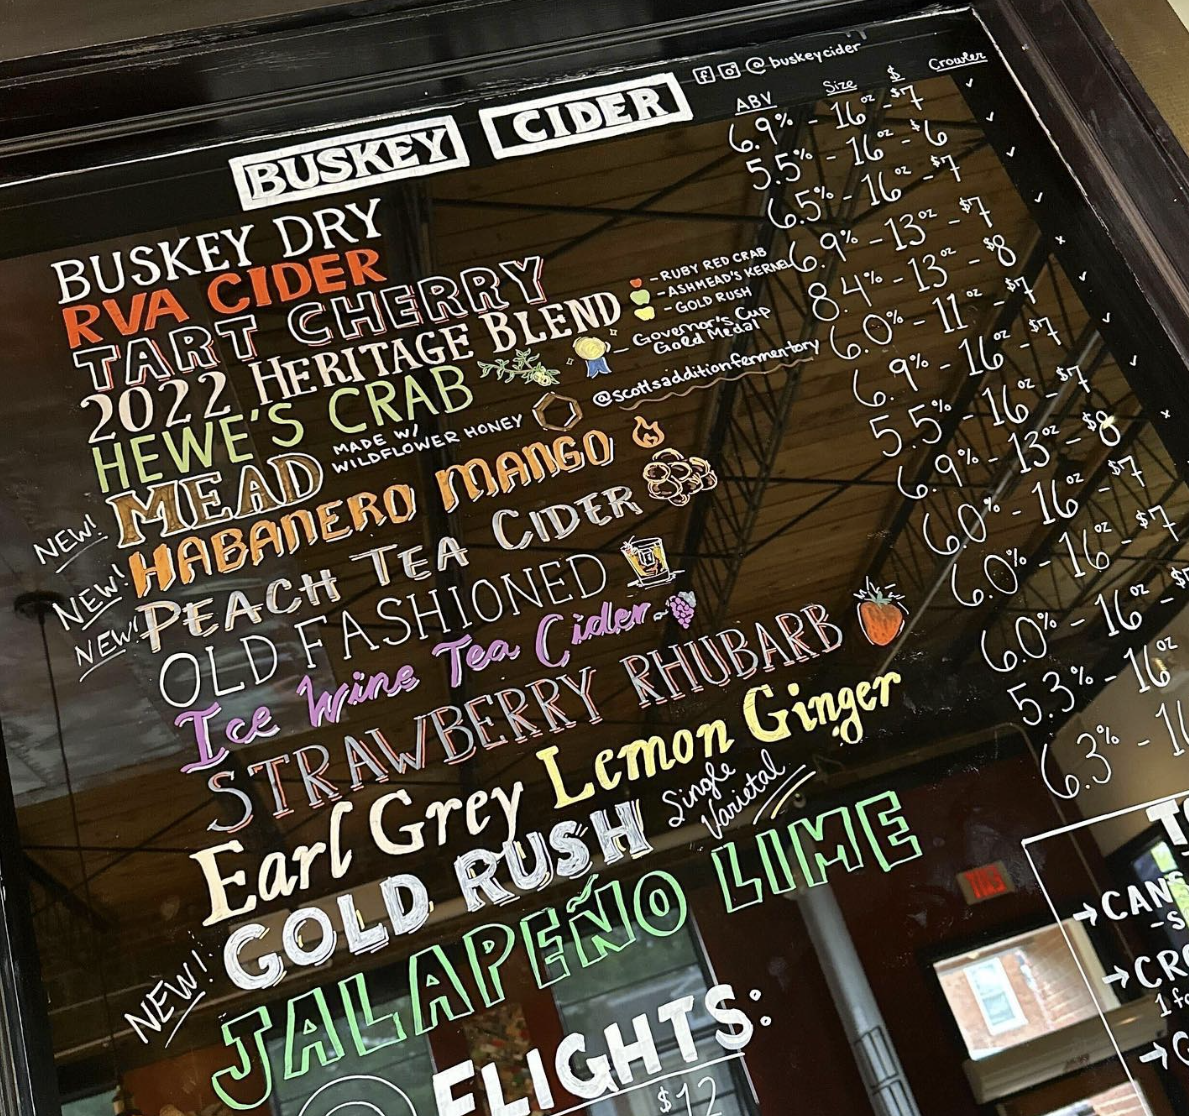 @buskeycider
BUSKEY CIDER
ABV Size $ Crowler
BUSKEY DRY 6.9% - 16oz - $7 ✓
RVA CIDER 5.5% - 16oz - $6 ✓
TART CHERRY 6.5% - 16oz - $7 ✓
2022 HERITAGE BLEND 6.9% - 13oz - $7 ✓
- RUBY RED CRAB
- ASHMEAD'S KERNEL
- GOLD RUSH
HEWE'S CRAB 8.4% - 13oz - $8 x
- Governor's Cup
Gold Medal
NEW! MEAD 6.0% - 11oz - $7 ✓
MADE W/
WILDFLOWER HONEY
@scottsadditionfermentory
NEW! HABANERO MANGO 6.9% - 16oz - $7 ✓
NEW! PEACH TEA CIDER 5.5% - 16oz - $7 ✓
OLD FASHIONED 6.9% - 13oz - $8 x
Ice Wine Tea Cider 6.0% - 16oz - $7
STRAWBERRY RHUBARB 6.0% - 16oz - $7
Earl Grey Lemon Ginger 6.0% - 16oz
GOLD RUSH 5.3% - 16oz
Single
Varietal
NEW! JALAPEÑO LIME 6.3%
FLIGHTS:
$12